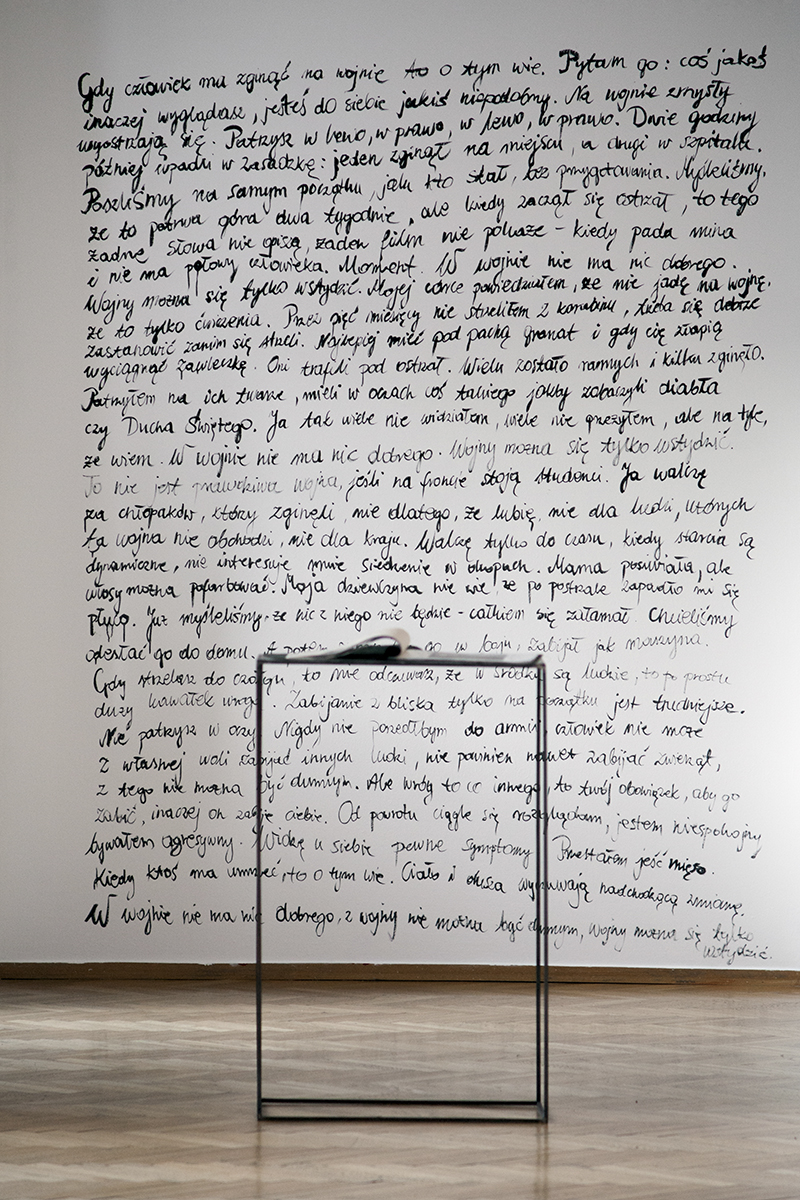 Gdy człowiek ma zginąć na wojnie to o tym wie. Pytam go: coś jakoś
inaczej wyglądasz, jesteś do siebie jakiś niepodobny. Na wojnie zmysły
wyostrzają się. Patrzysz w lewo, w prawo, w lewo, w prawo. Dwie godziny
później wpadli w zasadzkę: jeden zginął na miejscu, a drugi w szpitalu.
Poszliśmy na samym początku, jak kto stał, bez przygotowania. Myśleliśmy,
że to potrwa góra dwa tygodnie, ale kiedy zaczął się ostrzał, to tego
żadne słowa nie opiszą, żaden film nie pokaże – kiedy pada mina
i nie ma połowy człowieka. Moment. W wojnie nie ma nic dobrego.
Wojny można się tylko wstydzić. Mojej córce powiedziałem, że nie jadę na wojnę,
że to tylko ćwiczenia. Przez pięć miesięcy nie strzeliłem z karabinu, trzeba się dobrze
zastanowić zanim się strzeli. Najlepiej mieć pod pachą granat i gdy cię złapią
wyciągnąć zawleczkę. Oni trafili pod ostrzał. Wielu zostało rannych i kilku zginęło.
Patrzyłem na ich twarze, mieli w oczach coś takiego jakby zobaczyli diabła
czy Ducha Świętego. Ja tak wiele nie widziałem, wiele nie przeżyłem, ale na tyle,
że wiem. W wojnie nie ma nic dobrego. Wojny można się tylko wstydzić.
To nie jest prawdziwa wojna, jeśli na froncie stoją studenci. Ja walczę
za chłopaków, którzy zginęli, nie dlatego, że lubię, nie dla ludzi, których
ta wojna nie obchodzi, nie dla kraju. Walczę tylko do czasu, kiedy starcia są
dynamiczne, nie interesuje mnie siedzenie w okopach. Mama posiwiała, ale
włosy można pofarbować. Moja dziewczyna nie wie, że po postrzale zapadło mi się
płuco. Już myśleliśmy, że nic z niego nie będzie – całkiem się załamał. Chcieliśmy
odesłać go do domu. A w boju, zabijał jak maszyna.
Gdy strzelasz do czołgu, to nie odczuwasz, że w środku są ludzie, to po prostu
duży kawałek wroga. Zabijanie z bliska tylko na początku jest trudniejsze.
Nie patrzysz w oczy. Nigdy nie poszedłbym do armii, człowiek nie może
z własnej woli zabijać innych ludzi, nie powinien nawet zabijać zwierząt,
z tego nie można być dumnym. Ale wróg to co innego, to twój obowiązek, aby go
zabić, inaczej on zabije ciebie. Od powrotu ciągle się rozglądam, jestem niespokojny
bywałem agresywny. Widzę u siebie pewne symptomy. Przestałem jeść mięso.
Kiedy ktoś ma umrzeć, to o tym wie. Ciało i dusza wyczuwają nadchodzącą zmianę.
W wojnie nie ma nic dobrego, z wojny nie można być dumnym, wojny można się tylko
wstydzić.